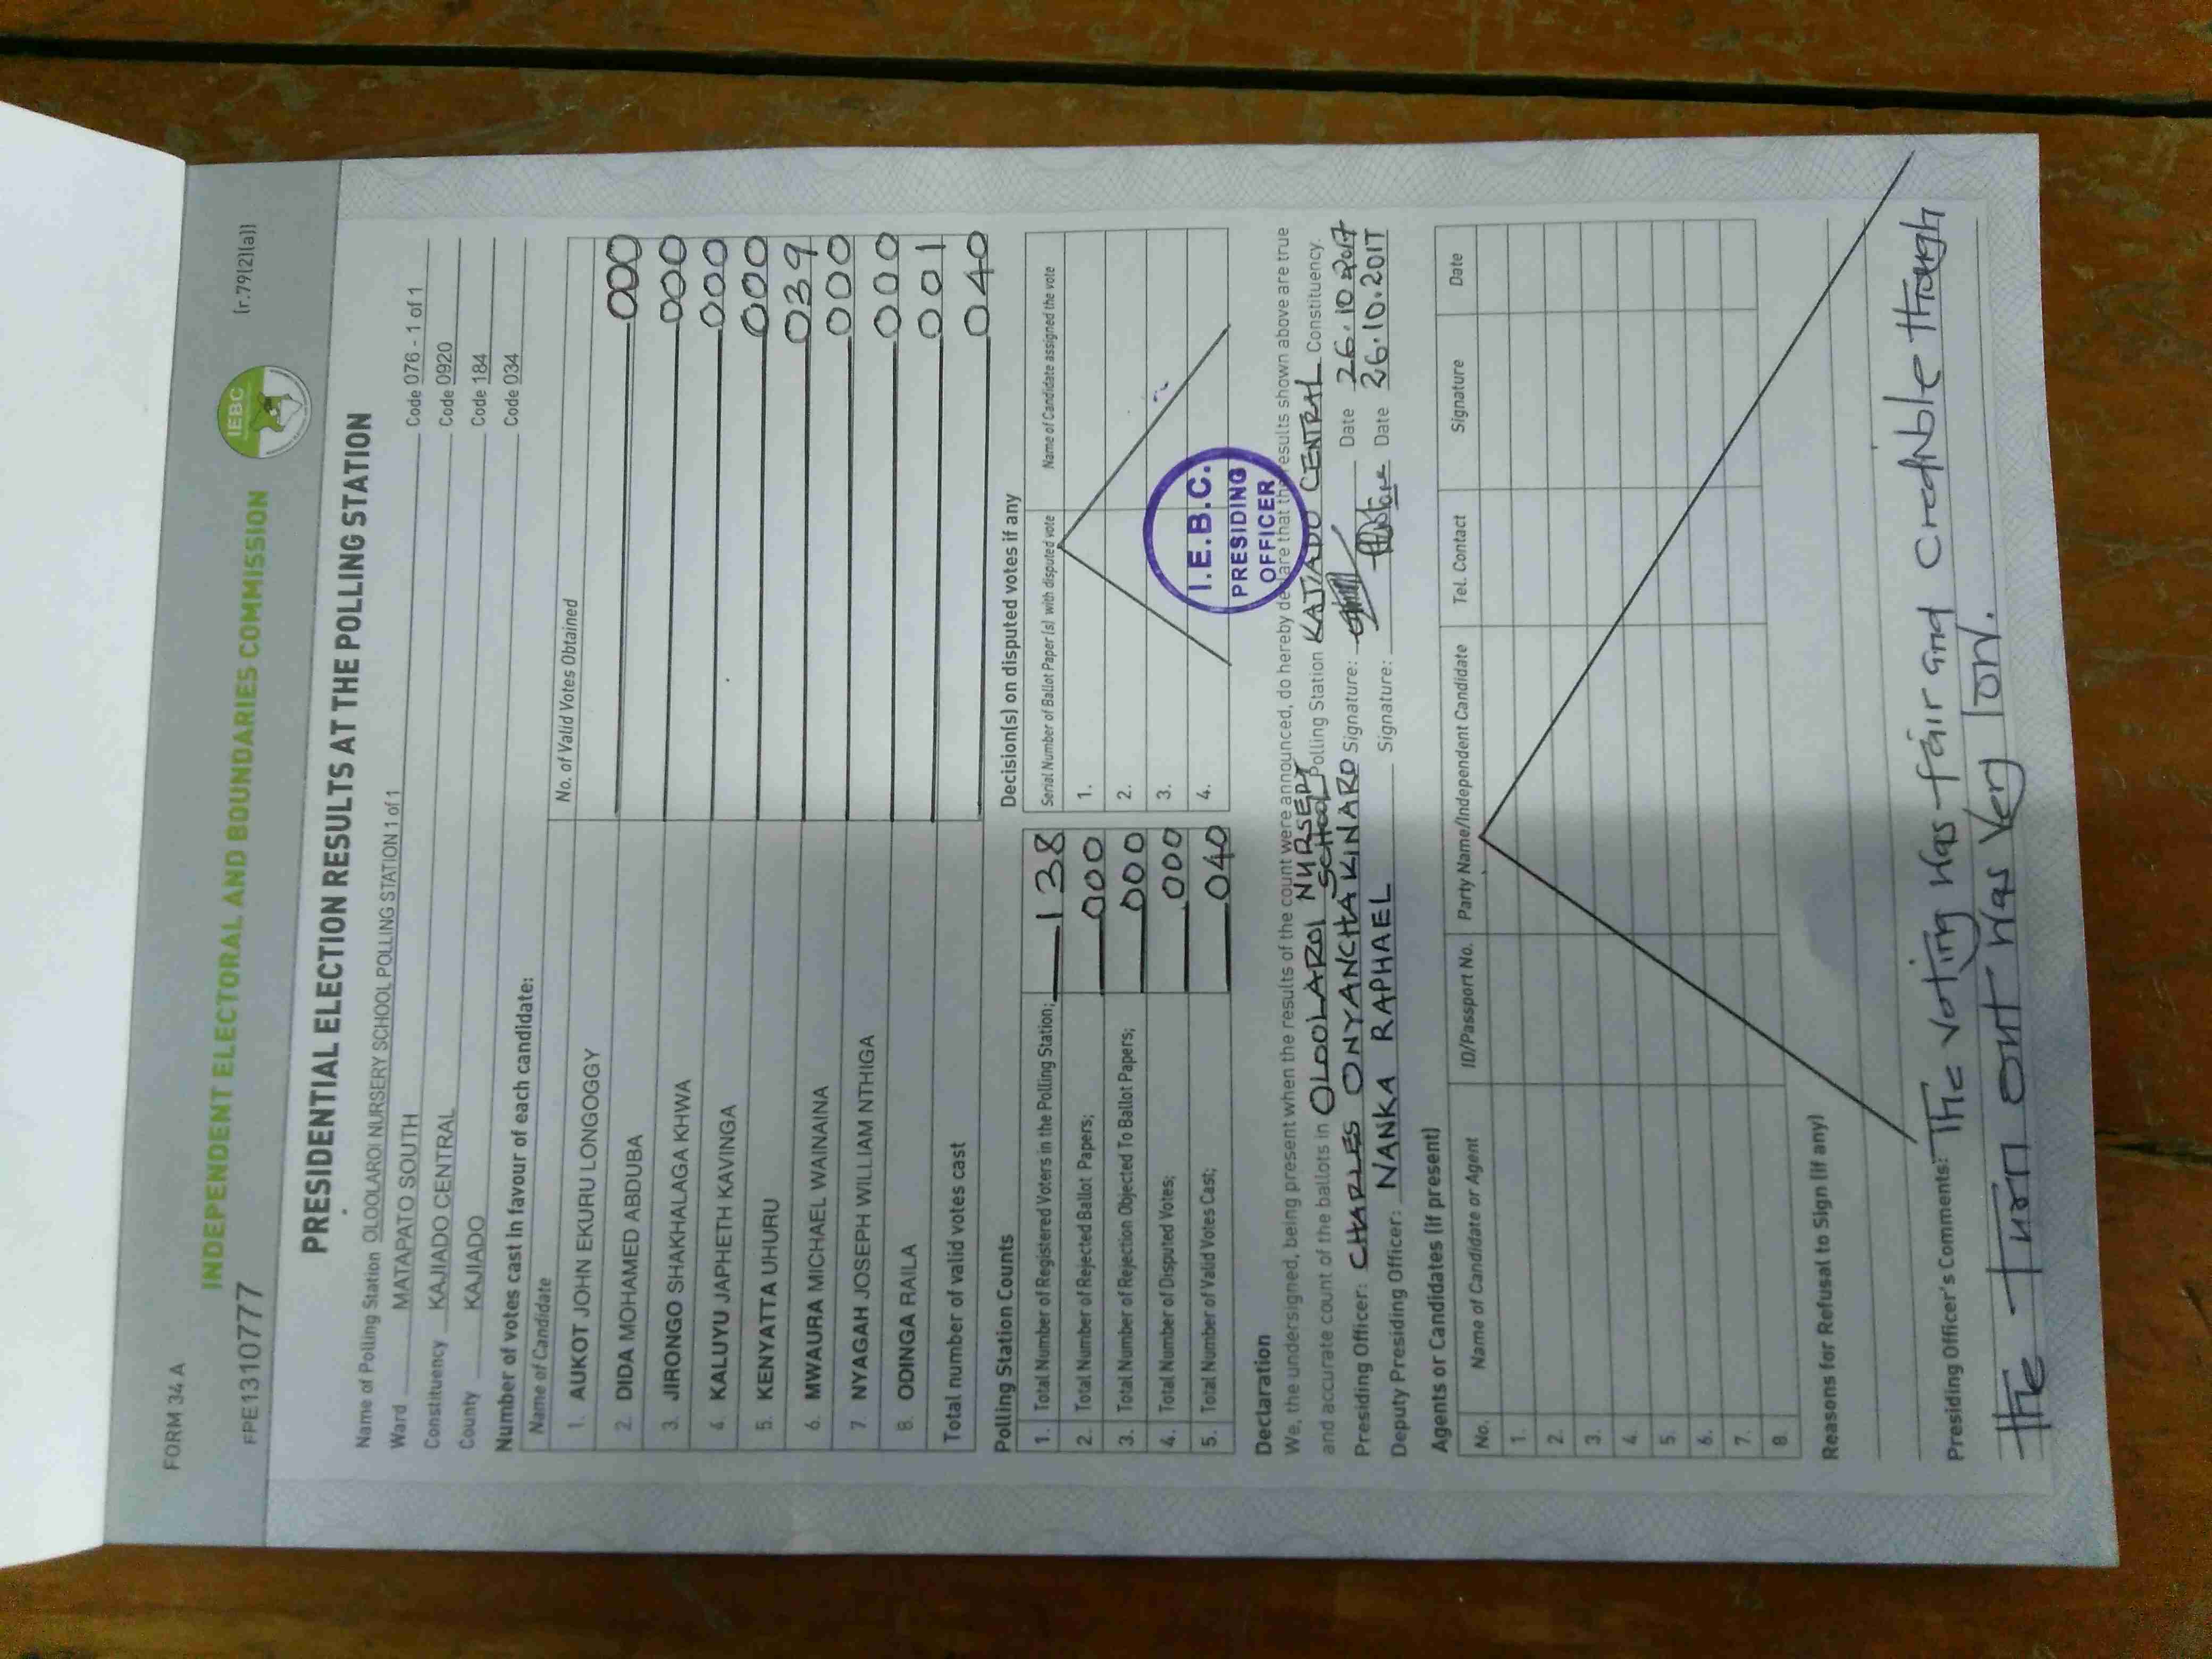 FORM 34 A
(r.79(2)(a))
INDEPENDENT ELECTORAL AND BOUNDARIES COMMISSION
IEBC
FPE1310777
PRESIDENTIAL ELECTION RESULTS AT THE POLLING STATION
Name of Polling Station OLOOLAROI NURSERY SCHOOL POLLING STATION 1 of 1 Code 076 - 1 of 1
Ward MATAPATO SOUTH Code 0920
Constituency KAJIADO CENTRAL Code 184
County KAJIADO Code 034
Number of votes cast in favour of each candidate:
Name of Candidate No. of Valid Votes Obtained
1. AUKOT JOHN EKURU LONGOGGY 000
2. DIDA MOHAMED ABDUBA 000
3. JIRONGO SHAKHALAGA KHWA 000
4. KALUYU JAPHETH KAVINGA 000
5. KENYATTA UHURU 039
6. MWAURA MICHAEL WAINAINA 000
7. NYAGAH JOSEPH WILLIAM NTHIGA 000
8. ODINGA RAILA 001
Total number of valid votes cast 040
Polling Station Counts
1. Total Number of Registered Voters in the Polling Station; 138
2. Total Number of Rejected Ballot Papers; 000
3. Total Number of Rejection Objected To Ballot Papers; 000
4. Total Number of Disputed Votes; 000
5. Total Number of Valid Votes Cast; 040
Decision(s) on disputed votes if any
Serial Number of Ballot Paper(s) with disputed vote Name of Candidate assigned the vote
1.
2.
3.
4.
I.E.B.C.
PRESIDING
OFFICER
Declaration
We, the undersigned, being present when the results of the count were announced, do hereby declare that the results shown above are true
and accurate count of the ballots in OLOOLAROI NURSERY SCHOOL Polling Station KAJIADO CENTRAL Constituency.
Presiding Officer: CHARLES ONYANCHA KINARO Signature: Date 26.10.2017
Deputy Presiding Officer: NANKA RAPHAEL Signature: Date 26.10.2017
Agents or Candidates (if present)
No. Name of Candidate or Agent ID/Passport No. Party Name/Independent Candidate Tel. Contact Signature Date
1.
2.
3.
4.
5.
6.
7.
8.
Reasons for Refusal to Sign (if any)
Presiding Officer's Comments: The voting was fair and Credinble though
the Turn out was very low.